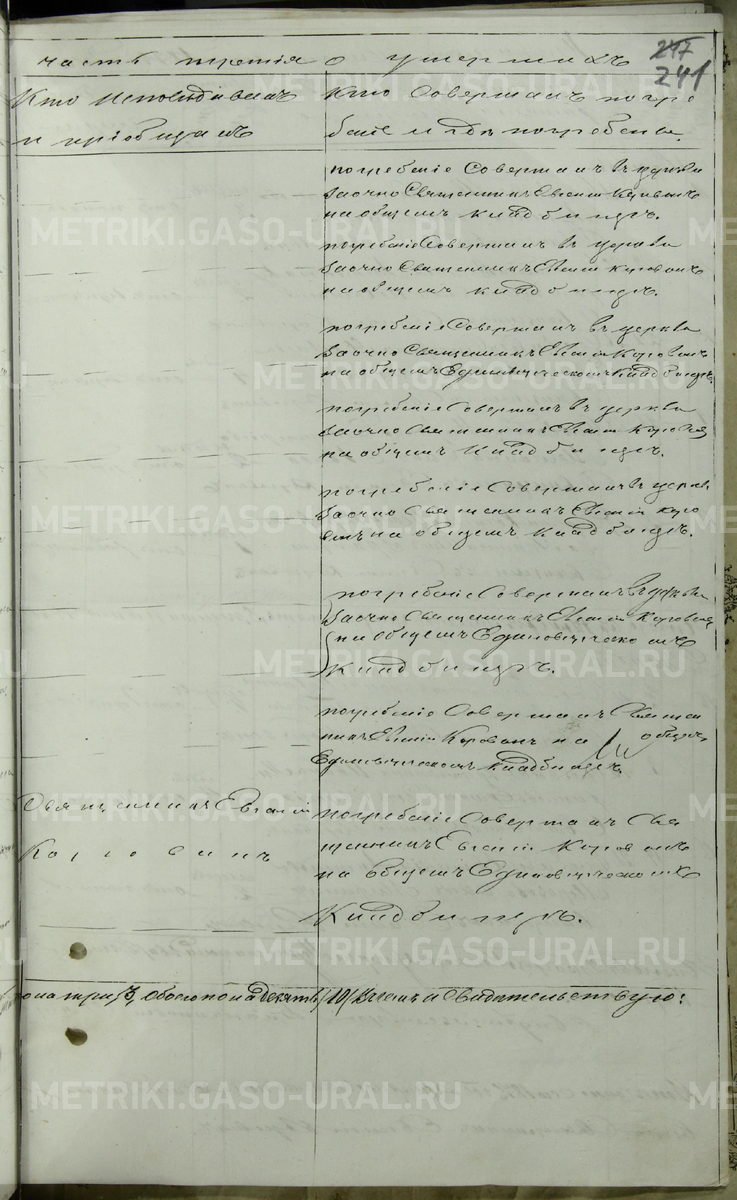 247
241
часть третія о умершихъ
Кто Исповѣдывалъ
и пріобщалъ
Кто Совершалъ погре
беніе и гдѣ погребены.
погребеніе Совершалъ въ церкви
Заочно Священникъ Евгеній Коровинъ
на общемъ кладбищѣ.
погребеніе Совершалъ въ церкви
Заочно Священникъ Евгеній Коровинъ
на общемъ кладбищѣ.
погребеніе Совершалъ въ церкви
Заочно Священникъ Евгеній Коровинъ
на общемъ Единовѣрческомъ Кладбищѣ.
погребеніе Совершалъ въ церкви
Заочно Священникъ Евгеній Коровинъ
на общемъ Кладбищѣ.
погребеніе Совершалъ въ церкви
Заочно Священникъ Евгеній Коро
винъ на общемъ Кладбищѣ.
погребеніе Совершалъ въ церкви
Заочно Священникъ Евгеній Коровинъ
на общемъ Единовѣрческомъ
Кладбищѣ.
погребеніе Совершалъ Священ
никъ Евгеній Коровинъ на общемъ
Единовѣрческомъ кладбищѣ
Священникъ Евгеній
Коровинъ
погребеніе Совершалъ Свя
щенникъ Евгеній Коровинъ
на общемъ Единовѣрческомъ
Кладбищѣ.
пола три /3/, обоего пола десять /10/ въ чемъ и Свидѣтельствую:
METRIKI.GASO-URAL.RU